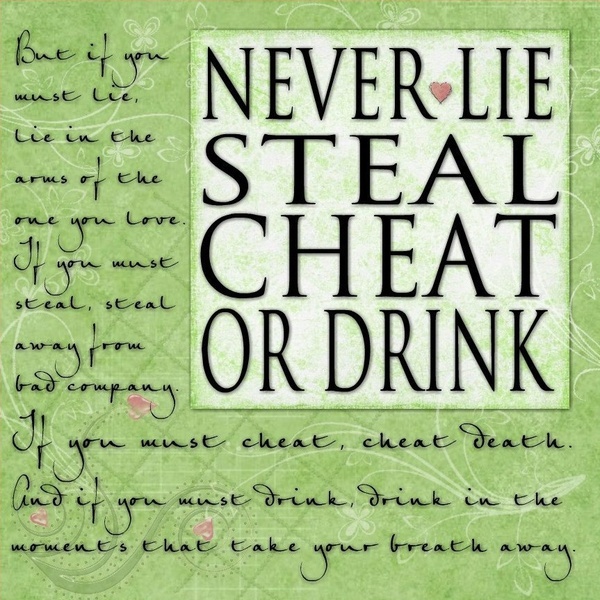 NEVER LIE
STEAL
CHEAT
OR DRINK
But if you
must lie,
lie in the
arms of the
one you love.
If you must
steal, steal
away from
bad company.
If you must cheat, cheat death.
And if you must drink, drink in the
moments that take your breath away.